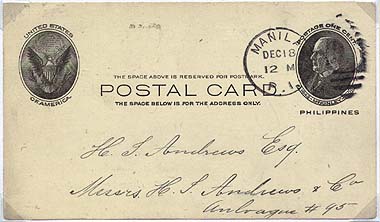 UNITED STATES
OF AMERICA
MANILA
DEC 18
12 M
P. I.
POSTAGE ONE CENT.
THE SPACE ABOVE IS RESERVED FOR POSTMARK.
POSTAL CARD
THE SPACE BELOW IS FOR THE ADDRESS ONLY.
PHILIPPINES
H. S. Andrews Esq.
Messrs. H. S. Andrews & Co
# 95